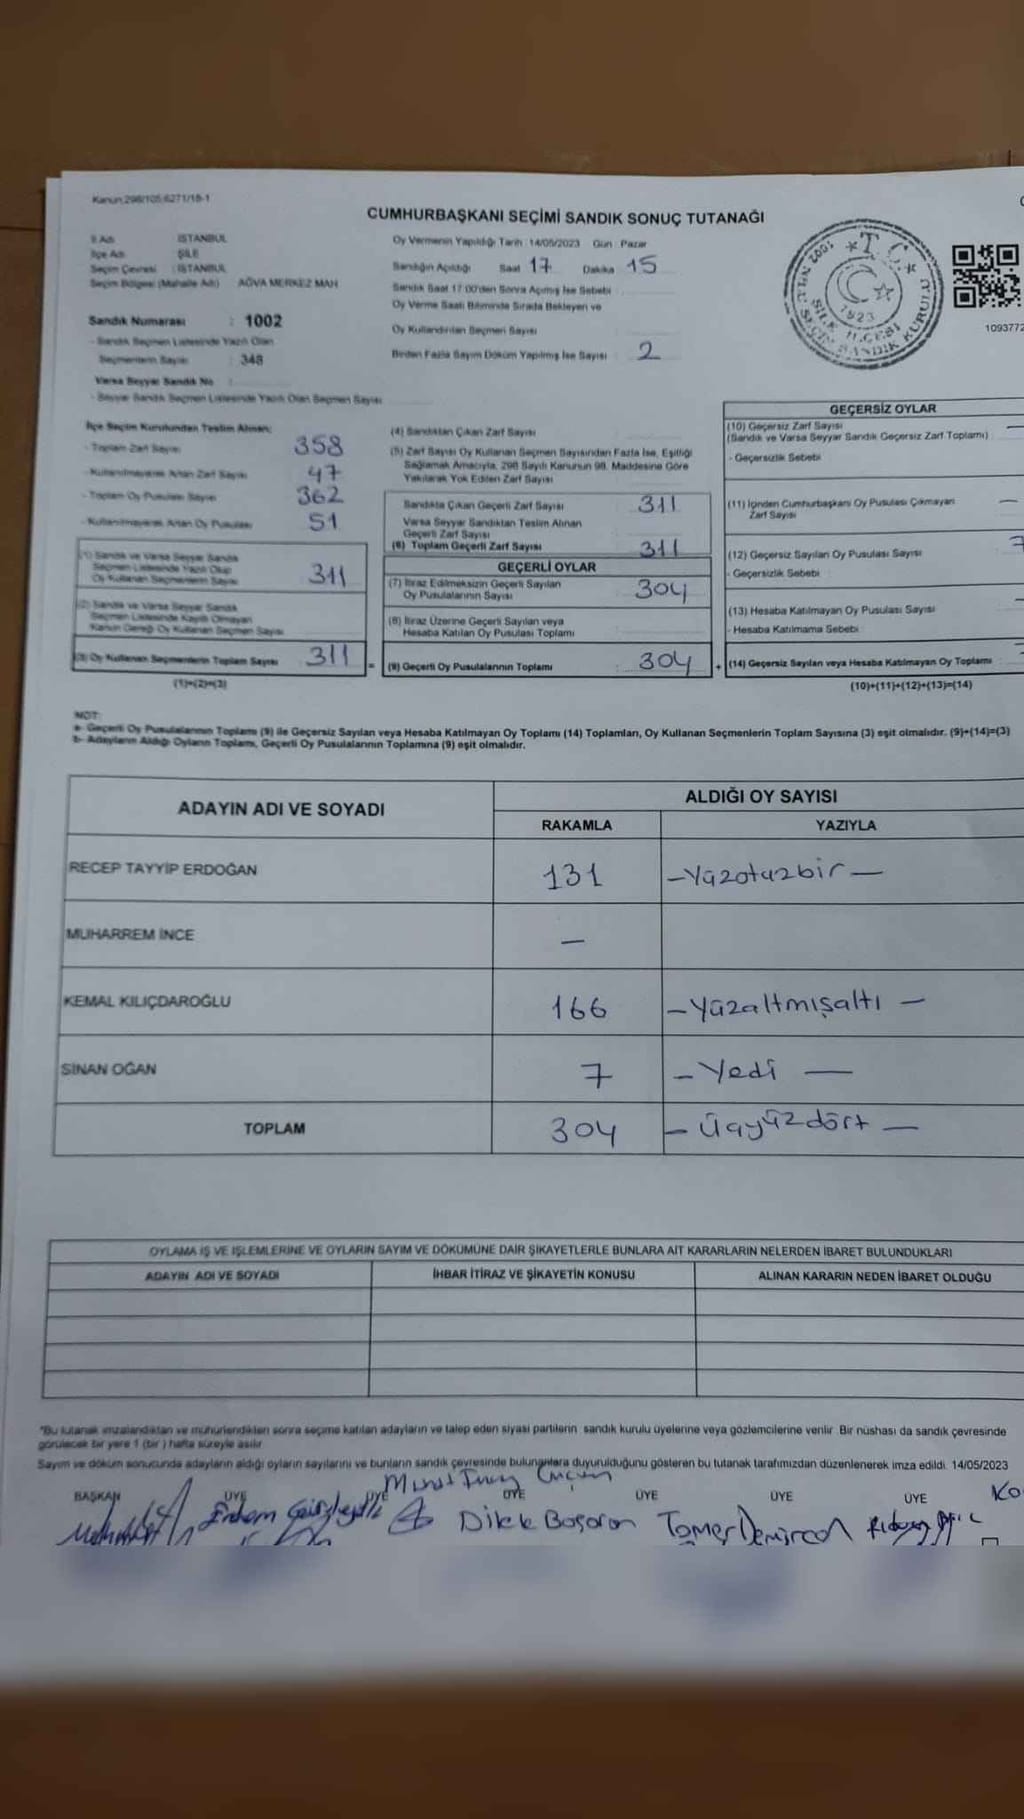 Kanun:298/105,6271/18-1
CUMHURBAŞKANI SEÇİMİ SANDIK SONUÇ TUTANAĞI
İl Adı İSTANBUL
İlçe Adı ŞİLE
Seçim Çevresi : İSTANBUL
Seçim Bölgesi (Mahalle Adı) AĞVA MERKEZ MAH
Sandık Numarası : 1002
- Sandık Seçmen Listesinde Yazılı Olan
Seçmenlerin Sayısı : 348
Varsa Seyyar Sandık No :
- Seyyar Sandık Seçmen Listesinde Yazılı Olan Seçmen Sayısı
Oy Vermenin Yapıldığı Tarih : 14/05/2023 Gün : Pazar
Sandığın Açıldığı Saat 17 Dakika 15
Sandık Saat 17:00'den Sonra Açılmış İse Sebebi
Oy Verme Saati Bitiminde Sırada Bekleyen ve
Oy Kullandırılan Seçmen Sayısı
Birden Fazla Sayım Döküm Yapılmış İse Sayısı : 2
T.C.
1923
ŞİLE İLÇESİ
1002 NOLU SEÇİM SANDIK KURULU
1093772
İlçe Seçim Kurulundan Teslim Alınan:
- Toplam Zarf Sayısı 358
- Kullanılmayarak Artan Zarf Sayısı 47
- Toplam Oy Pusulası Sayısı 362
- Kullanılmayarak Artan Oy Pusulası 51
(1) Sandık ve Varsa Seyyar Sandık
Seçmen Listesinde Yazılı Olup
Oy Kullanan Seçmenlerin Sayısı 311
(2) Sandık ve Varsa Seyyar Sandık
Seçmen Listesinde Kayıtlı Olmayan
Kanun Gereği Oy Kullanan Seçmen Sayısı
(3) Oy Kullanan Seçmenlerin Toplam Sayısı 311 =
(1)+(2)=(3)
(4) Sandıktan Çıkan Zarf Sayısı
(5) Zarf Sayısı Oy Kullanan Seçmen Sayısından Fazla İse, Eşitliği
Sağlamak Amacıyla, 298 Sayılı Kanunun 98. Maddesine Göre
Yakılarak Yok Edilen Zarf Sayısı
Sandıkta Çıkan Geçerli Zarf Sayısı 311
Varsa Seyyar Sandıktan Teslim Alınan
Geçerli Zarf Sayısı
(6) Toplam Geçerli Zarf Sayısı 311
GEÇERLİ OYLAR
(7) İtiraz Edilmeksizin Geçerli Sayılan
Oy Pusulalarının Sayısı 304
(8) İtiraz Üzerine Geçerli Sayılan veya
Hesaba Katılan Oy Pusulası Toplamı
(9) Geçerli Oy Pusulalarının Toplamı : 304 +
GEÇERSİZ OYLAR
(10) Geçersiz Zarf Sayısı —
(Sandık ve Varsa Seyyar Sandık Geçersiz Zarf Toplamı)
- Geçersizlik Sebebi
(11) İçinden Cumhurbaşkanı Oy Pusulası Çıkmayan —
Zarf Sayısı
(12) Geçersiz Sayılan Oy Pusulası Sayısı
- Geçersizlik Sebebi
(13) Hesaba Katılmayan Oy Pusulası Sayısı
- Hesaba Katılmama Sebebi
(14) Geçersiz Sayılan veya Hesaba Katılmayan Oy Toplamı
(10)+(11)+(12)+(13)=(14)
NOT:
a- Geçerli Oy Pusulalarının Toplamı (9) ile Geçersiz Sayılan veya Hesaba Katılmayan Oy Toplamı (14) Toplamları, Oy Kullanan Seçmenlerin Toplam Sayısına (3) eşit olmalıdır. (9)+(14)=(3)
b- Adayların Aldığı Oyların Toplamı, Geçerli Oy Pusulalarının Toplamına (9) eşit olmalıdır.
ADAYIN ADI VE SOYADI
ALDIĞI OY SAYISI
RAKAMLA YAZIYLA
RECEP TAYYİP ERDOĞAN 131 -Yüzotuzbir-
MUHARREM İNCE —
KEMAL KILIÇDAROĞLU 166 -Yüzaltmışaltı-
SİNAN OĞAN 7 -Yedi-
TOPLAM 304 -Üçyüzdört-
OYLAMA İŞ VE İŞLEMLERİNE VE OYLARIN SAYIM VE DÖKÜMÜNE DAİR ŞİKAYETLERLE BUNLARA AİT KARARLARIN NELERDEN İBARET BULUNDUKLARI
ADAYIN ADI VE SOYADI İHBAR İTİRAZ VE ŞİKAYETİN KONUSU ALINAN KARARIN NEDEN İBARET OLDUĞU
*Bu tutanak imzalandıktan ve mühürlendikten sonra seçime katılan adayların ve talep eden siyasi partilerin sandık kurulu üyelerine veya gözlemcilerine verilir. Bir nüshası da sandık çevresinde
görülecek bir yere 1 (bir) hafta süreyle asılır.
Sayım ve döküm sonucunda adayların aldığı oyların sayılarını ve bunların sandık çevresinde bulunanlara duyurulduğunu gösteren bu tutanak tarafımızdan düzenlenerek imza edildi. 14/05/2023
BAŞKAN ÜYE ÜYE ÜYE ÜYE ÜYE ÜYE
Erdem Dilek Başaran Tamer Demircan